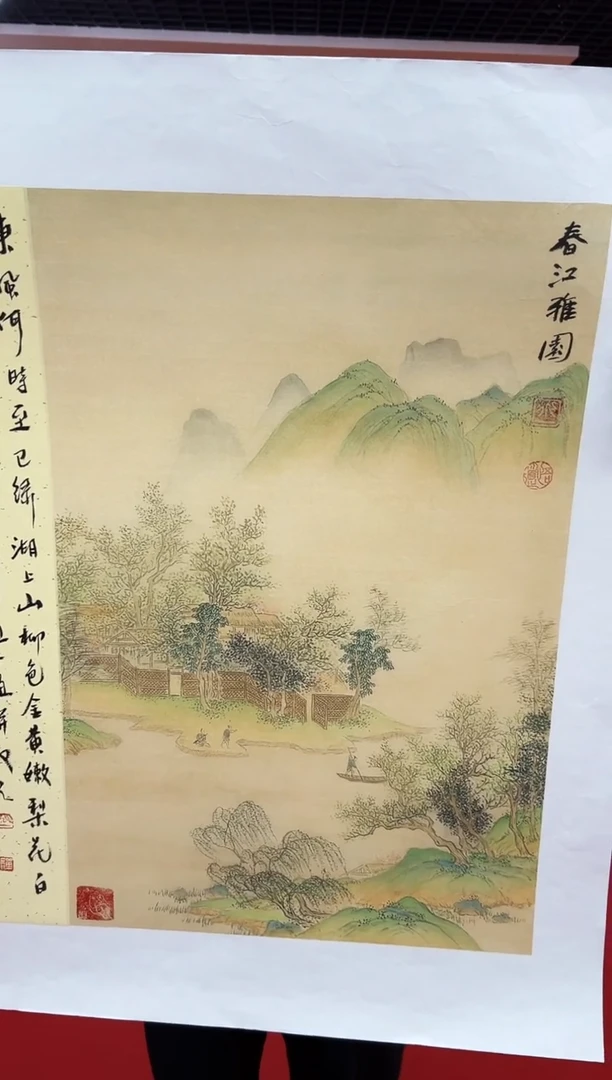 春江雅園
東風何時至已綠湖上山柳色金黃嫩梨花白